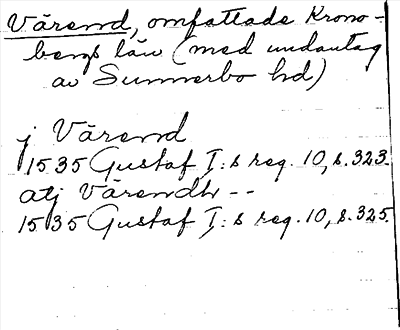 Värend, omfattade Krono-
bergs län (med undantag
av Sunnerbo hd)
j Värend
1535 Gustaf I:s reg. 10, s. 323.
atj Värendh --
1535 Gustaf I:s reg. 10, s. 325.